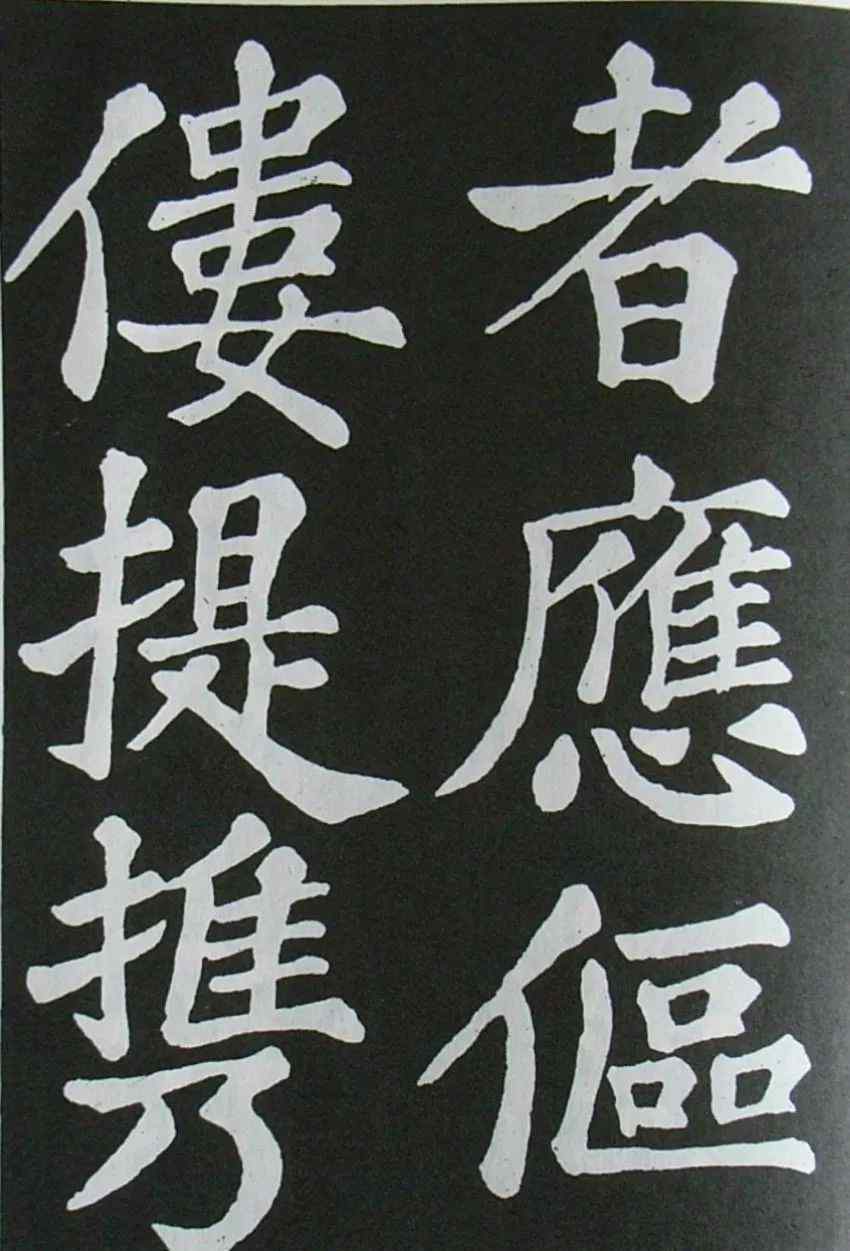 者應傴
僂提攜